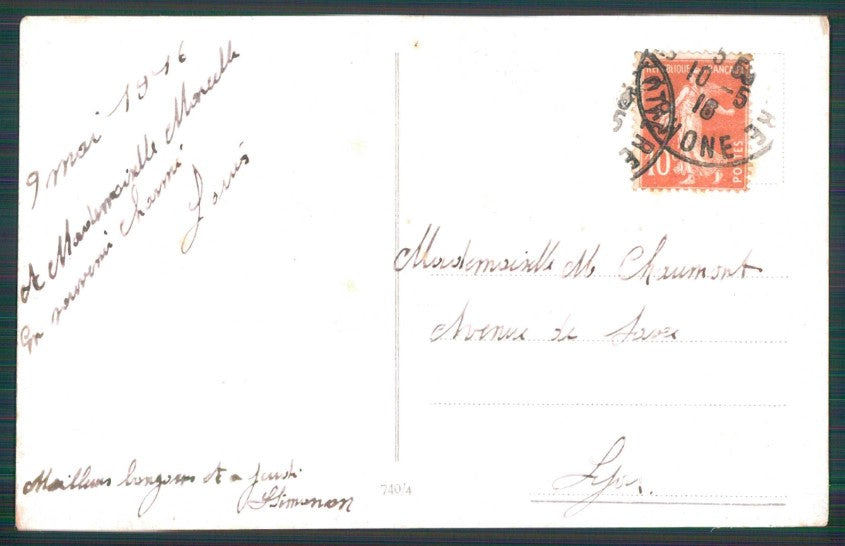 9 mai 1916
A Mademoiselle Marcelle
En souvenir Charmé
Louis
Meilleurs bonjours et a jeudi
Simonon
740/4
RÉPUBLIQUE FRANÇAISE
10
POSTES
10 -5
RHONE
Mademoiselle M Chaumont
Avenue de Saxe
Lyon